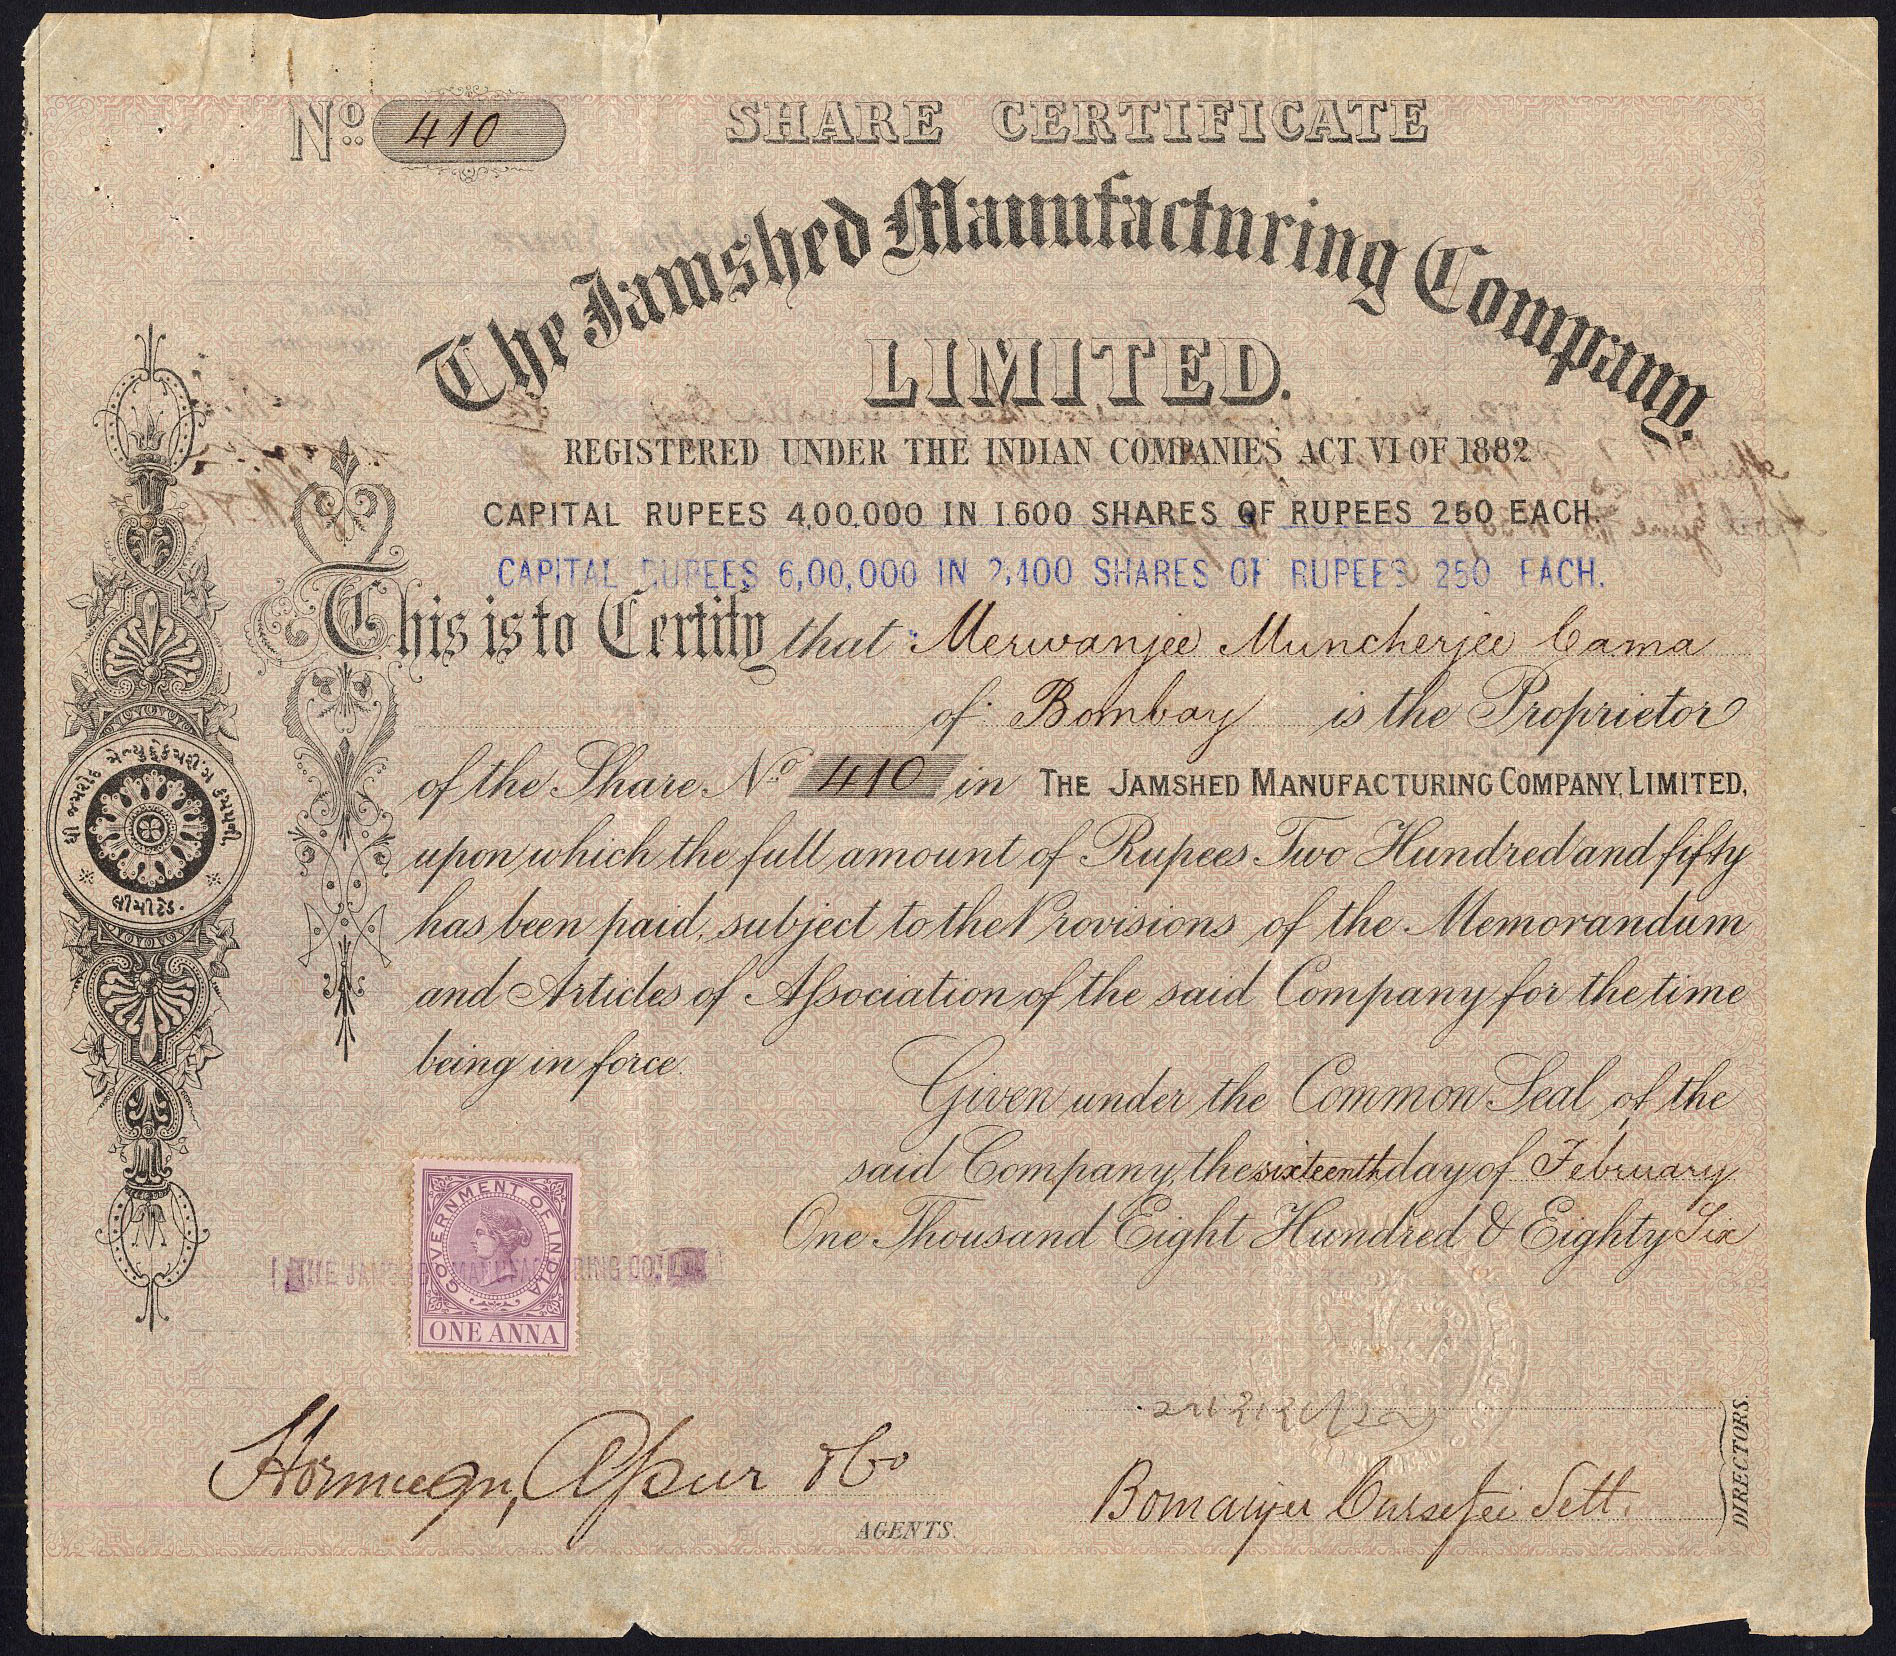 No. 410
SHARE CERTIFICATE
The Jamshed Manufacturing Company,
LIMITED.
REGISTERED UNDER THE INDIAN COMPANIES ACT VI OF 1882
CAPITAL RUPEES 4,00,000 IN 1,600 SHARES OF RUPEES 250 EACH.
CAPITAL RUPEES 6,00,000 IN 2,400 SHARES OF RUPEES 250 EACH.
This is to Certify that Merwanjee Muncherjee Cama
of Bombay is the Proprietor
of the Share No. 410 in THE JAMSHED MANUFACTURING COMPANY, LIMITED,
upon which the full amount of Rupees Two Hundred and fifty
has been paid, subject to the Provisions of the Memorandum
and Articles of Association of the said Company for the time
being in force.
Given under the Common Seal of the
said Company, the sixteenth day of February
One Thousand Eight Hundred & Eighty Six
ધી જમશેદ મેન્યુફેકચરીંગ કંપની
લીમીટેડ.
GOVERNMENT OF INDIA
ONE ANNA
THE JAMSHED MANUFACTURING CO. LD.
& Co
AGENTS.
Cursetjee Sett.
DIRECTORS.